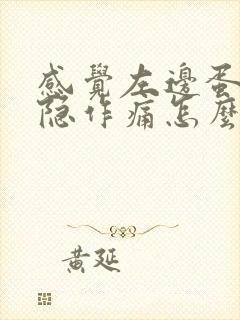 感覺左邊蛋
隐作痛怎麼
黃延